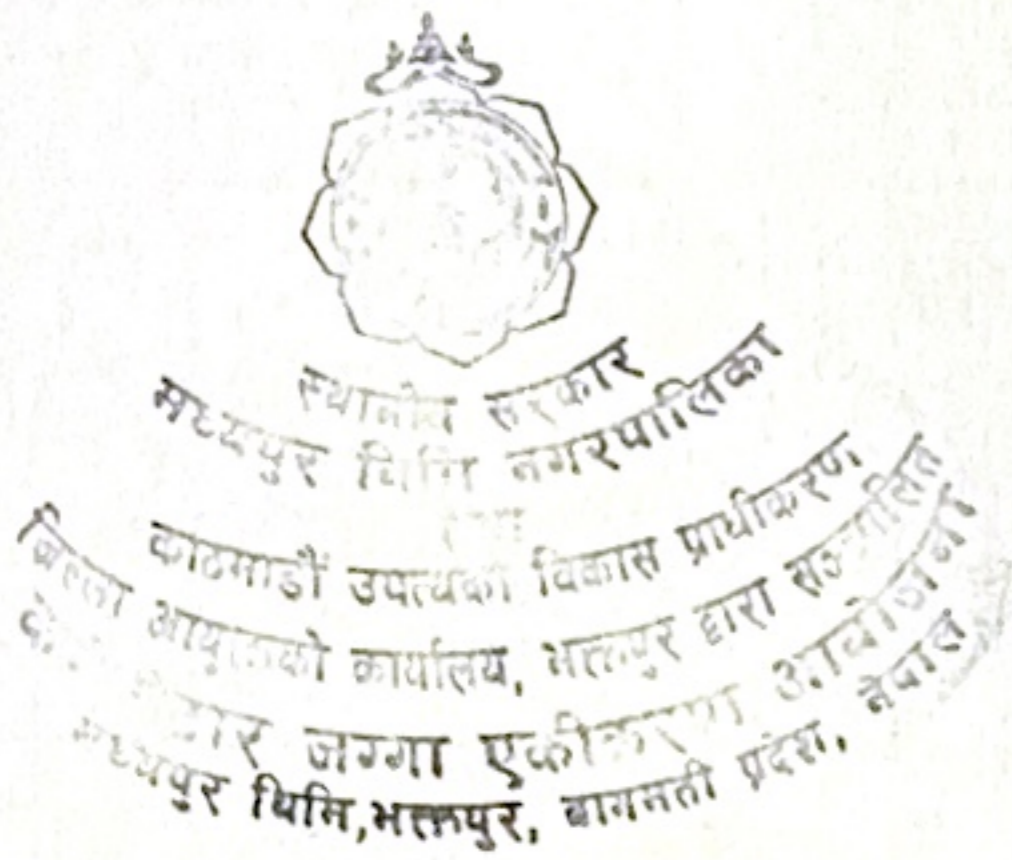 स्थानीय सरकार
मध्यपुर थिमि नगरपालिका
काठमाडौं उपत्यका विकास प्राधीकरण
जिल्ला आयुक्तको कार्यालय, भक्तपुर द्वारा सञ्चालित
जग्गा एकीकरण आयोजना
मध्यपुर थिमि, भक्तपुर, बागमती प्रदेश, नेपाल